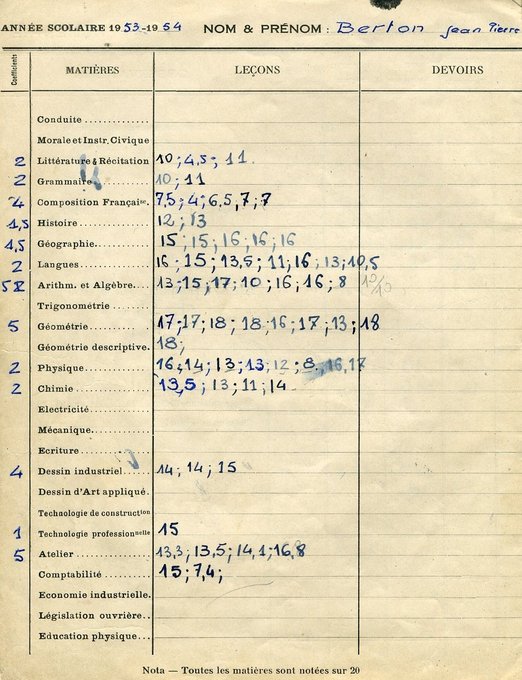 ANNÉE SCOLAIRE 1953-1954 NOM & PRÉNOM : Berton Jean Pierre
Coefficients MATIÈRES LEÇONS DEVOIRS
Conduite
Morale et Instr. Civique
2 Littérature & Récitation 10 ; 4,5 ; 11
2 Grammaire 10 ; 11
4 Composition Française. 7,5 ; 4 ; 6,5 ; 7 ; 7
1,5 Histoire 12 ; 13
1,5 Géographie 15 ; 15 ; 16 ; 16 ; 16
2 Langues 16 ; 15 ; 13,5 ; 11 ; 16 ; 13 ; 10,5
5 Arithm. et Algèbre 13 ; 15 ; 17 ; 10 ; 16 ; 16 ; 8
Trigonométrie
5 Géométrie 17 ; 17 ; 18 ; 18 ; 16 ; 17 ; 13 ; 18
Géométrie descriptive. 18 ;
2 Physique 16 ; 14 ; 13 ; 13 ; 12 ; 8 ; 16, 17
2 Chimie 13,5 ; 13 ; 11 ; 14
Electricité
Mécanique
Ecriture
4 Dessin industriel 14 ; 14 ; 15
Dessin d'Art appliqué.
Technologie de construction
1 Technologie professionnelle 15
5 Atelier 13,3 ; 13,5 ; 14,1 ; 16,8
Comptabilité 15 ; 7,4 ;
Economie industrielle.
Législation ouvrière
Education physique
Nota — Toutes les matières sont notées sur 20